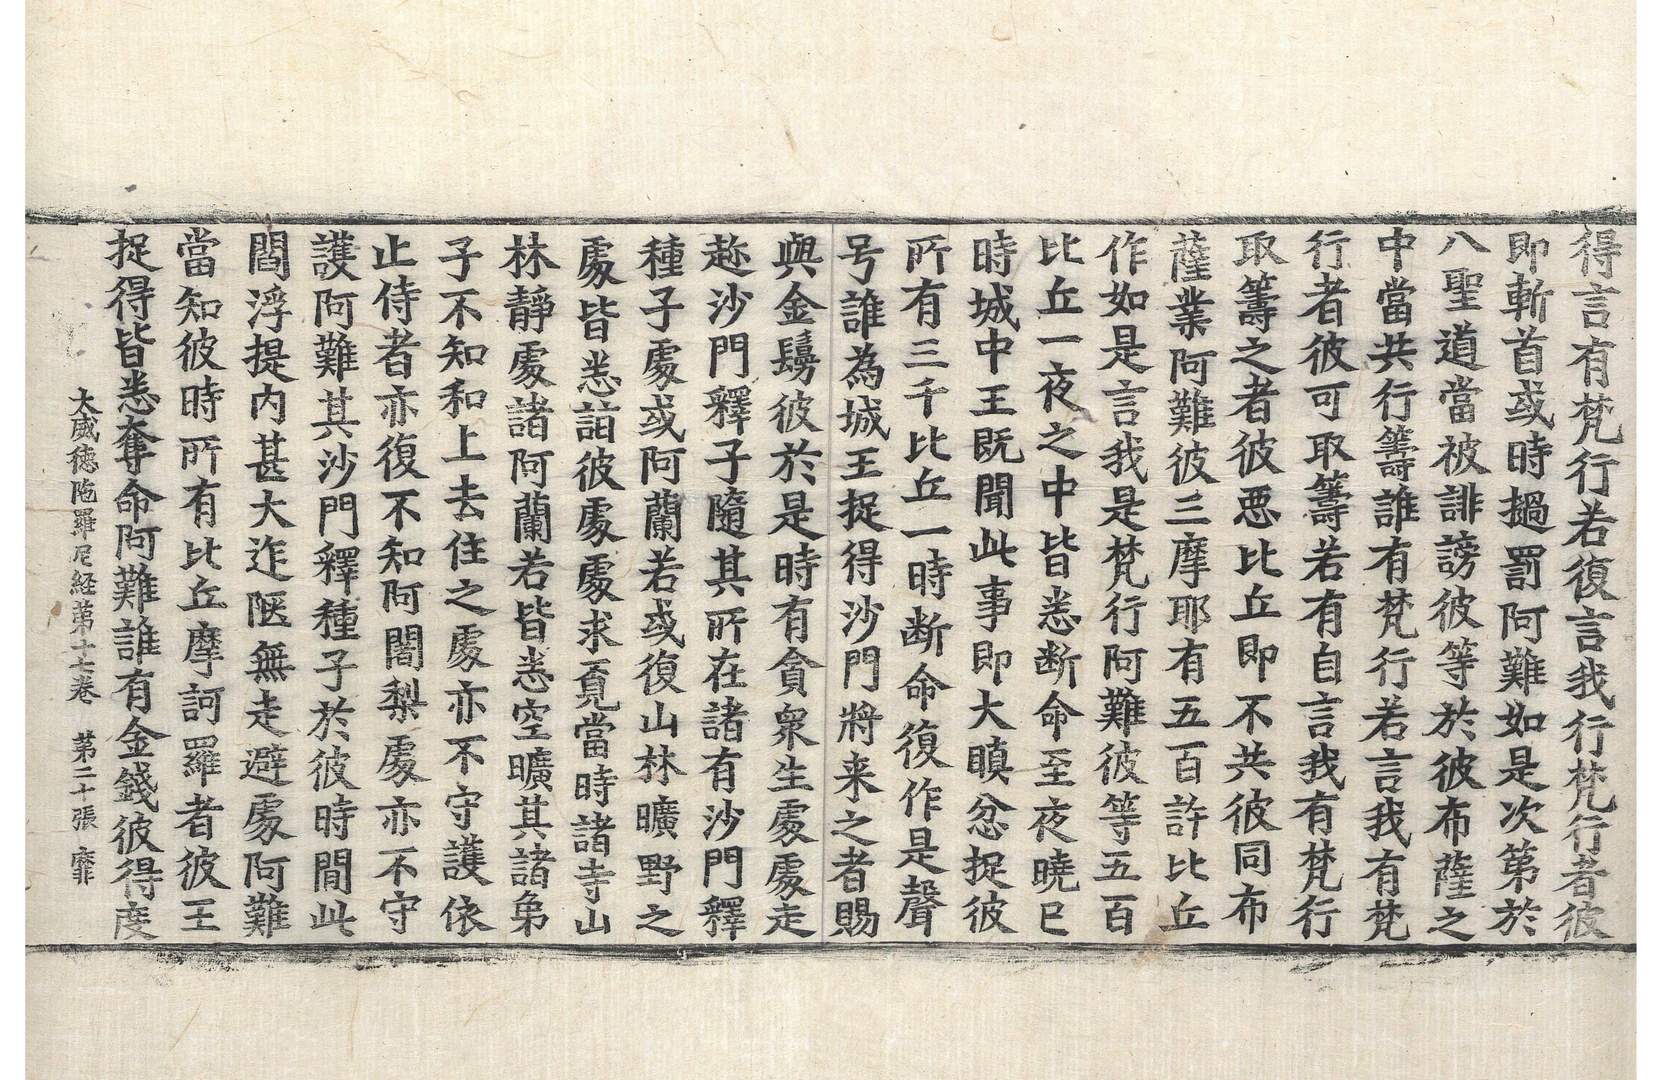 得言有梵行若復言我行梵行者彼
即斬首或時撾罰阿難如是次第於
八聖道當被誹謗彼等於彼布薩之
中當共行籌誰有梵行若言我有梵
行者彼可取籌若有自言我有梵行
取籌之者彼惡比丘即不共彼同布
薩業阿難彼三摩耶有五百許比丘
作如是言我是梵行阿難彼等五百
比丘一夜之中皆悉断命至夜曉已
時城中王既聞此事即大瞋忿捉彼
所有三千比丘一時断命復作是聲
号誰為城王捉得沙門將来之者賜
與金鬘彼於是時有貪衆生處處走
趂沙門釋子隨其所在諸有沙門釋
種子處或阿蘭若或復山林曠野之
處皆悉詣彼處處求覓當時諸寺山
林靜處諸阿蘭若皆悉空曠其諸弟
子不知和上去住之處亦不守護依
止侍者亦復不知阿闍梨處亦不守
護阿難其沙門釋種子於彼時間此
閻浮提内甚大迮陿無走避處阿難
當知彼時所有比丘摩訶羅者彼王
捉得皆悉奪命阿難誰有金錢彼得度
大威德陁羅尼経第十七卷 第二十張 靡